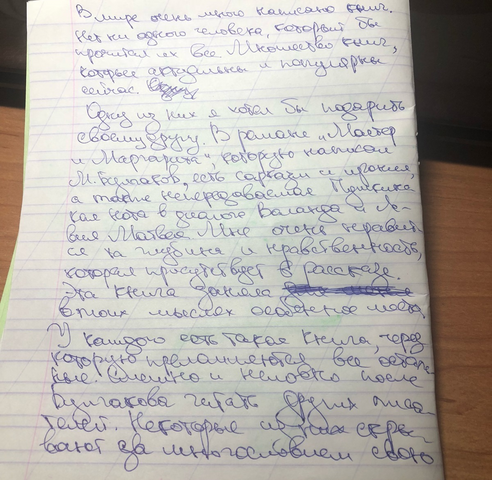 В мире очень много написано книг.
Нет ни одного человека, который бы
прочитал их все. Множество книг,
которые актуальны и популярны
сейчас.
Одну из них я хотел бы подарить
своему другу. В романе "Мастер
и Маргарита", которую написал
М. Булгаков, есть сарказм и ирония,
а также непередаваемая
как нота в диалоге Воланда и Ле-
вия Матвея. Мне очень нравит-
ся та глубина и нравственность,
которая присутствует в рассказе.
Эта книга заняла
в моих мыслях особенное место.
У каждого есть такая книга, через
которую преломляются все осталь-
ные. Смешно и неловко после
Булгакова читать других писа-
телей. Некоторые из них скры-
вают за многословием свою